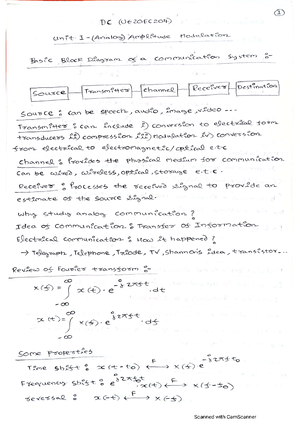 ①
DC (UE20EC204)
Unit 1 - (Analog) Amplitude Modulation
Basic Block Diagram of a communication System :-
Source Transmitter channel Receiver Destination
Source : can be speech, audio, image, video ...
Transmitter : can include i) conversion to electrical form
transducers ii) compression iii) modulation iv) conversion
from electrical to electromagnetic/optical etc
Channel : Provides the physical medium for communication
can be wired, wireless, optical, storage e.t.c.
Receiver : Processes the received signal to provide an
estimate of the source signal.
Why study analog communication?
Idea of Communication : Transfer of Information
Electrical communication : How it happened?
→ Telegraph, Telephone, Triode, TV, Shannon's idea, transistor...
Review of Fourier transform :-
x(f) = ∫_{-∞}^{∞} x(t) · e^{-j2πft} · dt
x(t) = ∫_{-∞}^{∞} x(f) · e^{j2πft} · df
Some Properties
Time shift : x(t-t₀) ⟷F x(f) · e^{-j2πft₀}
Frequency shift : e^{j2πf₀t} · x(t) ⟷F x(f-f₀)
reversal : x(-t) ⟷F x(-f)
Scanned with CamScanner